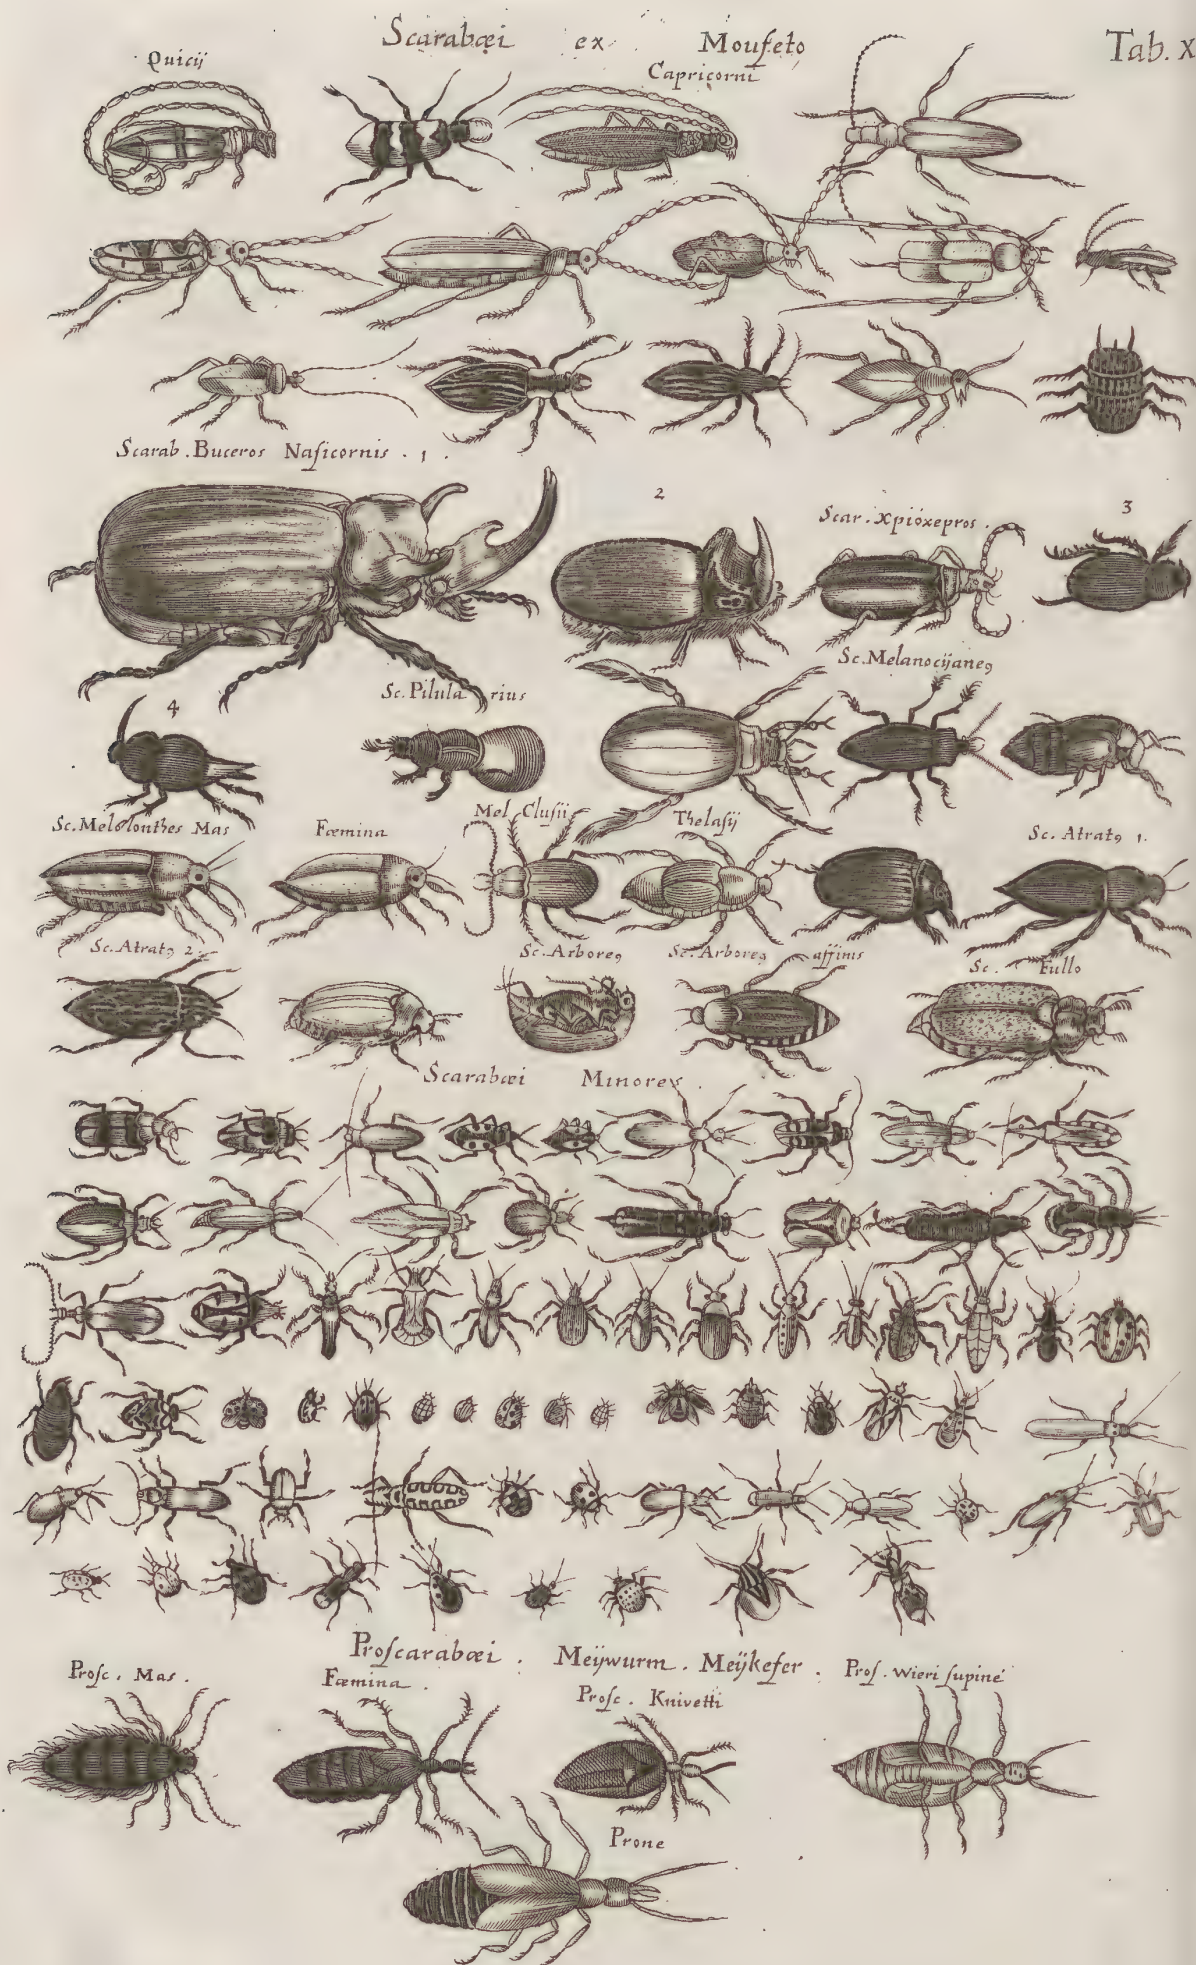 Scarabæi ex Moufeto Tab. X
Quicij
Capricorni
Scarab. Buceros Nasicornis . 1 .
2
Scar. Xpioxepros .
3
Sc. Melanocijaneꝯ
Sc. Pilularius
4
Sc. Melolonthes Mas
Fœmina
Mel Clusii
Thelasij
Sc. Atratꝯ 1.
Sc. Atratꝯ 2.
Sc. Arboreꝯ
Sc. Arboreꝯ affinis
Sc. Fullo
Scarabæi Minores .
Proscarabæi . Meijwurm . Meijkefer .
Prosc . Mas .
Fœmina .
Prosc . Knivetti
Pros . Wieri supine
Prone